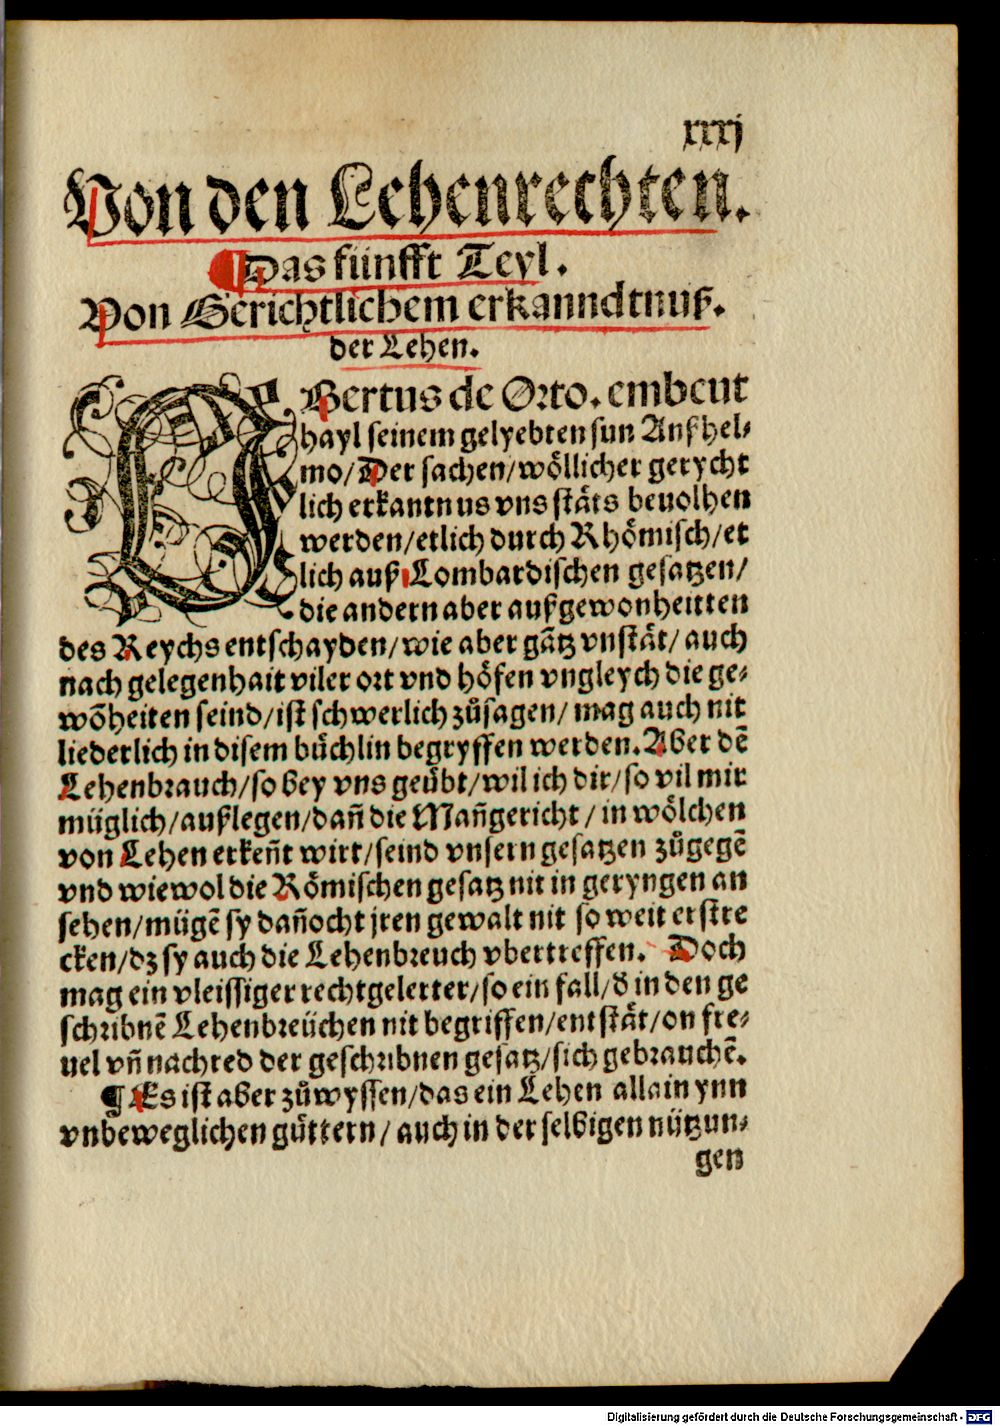 xxxj
Von den Lehenrechten.
Das fünfft Teyl.
Von Gerichtlichem erkanndtnuß.
der Lehen.
OBertus de Orto. embeut
hayl seinem gelyebten sun Anßhel-
mo/Der sachen/wöllicher gerycht
lich erkantnus vns stäts beuolhen
werden/etlich durch Rhömisch/et
lich auß Lombardischen gesatzen/
die andern aber auß gewonheitten
des Reychs entschayden/wie aber gātz vnstät/auch
nach gelegenhait viler ort vnd höfen vngleych die ge-
wōheiten seind/ist schwerlich zůsagen/mag auch nit
liederlich in disem büchlin begryffen werden. Aber dē
Lehenbrauch/so bey vns geübt/wil ich dir/so vil mir
müglich/außlegen/dañ die Mañgericht/in wölchen
von Lehen erkeñt wirt/seind vnsern gesatzen zůgegē
vnd wiewol die Römischen gesatz nit in geryngen an
sehen/mügē sy dañocht jren gewalt nit so weit erstre
cken/dz sy auch die Lehenbreuch vbertreffen. Doch
mag ein vleissiger rechtgelerter/so ein fall/d̕ in den ge
schribnē Lehenbreüchen nit begriffen/entstät/on fre-
uel vñ nachred der geschribnen gesatz/sich gebrauchē.
¶ Es ist aber zůwyssen/das ein Lehen allain ynn
vnbeweglichen güttern/auch in der selbigen nützun-
gen
Digitalisierung gefördert durch die Deutsche Forschungsgemeinschaft - DFG